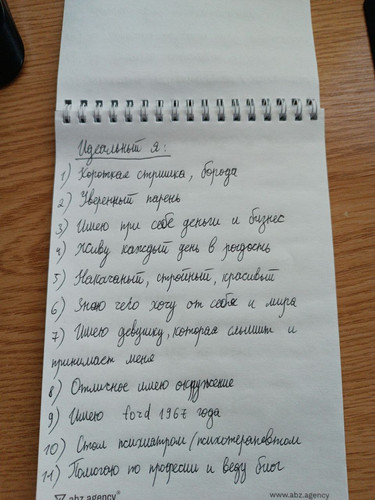 Идеальный я:
1) Короткая стрижка, борода
2) Уверенный парень
3) Имею при себе деньги и бизнес
4) Живу каждый день в радость
5) Накачаный, стройный, красивый
6) Знаю чего хочу от себя и мира
7) Имею девушку, которая слышит и
принимает меня
8) Отличное имею окружение
9) Имею ford 1967 года
10) Стал психиатром / психотерапевтом
11) Помогаю по професии и веду блог
abz.agency
www.abz.agency